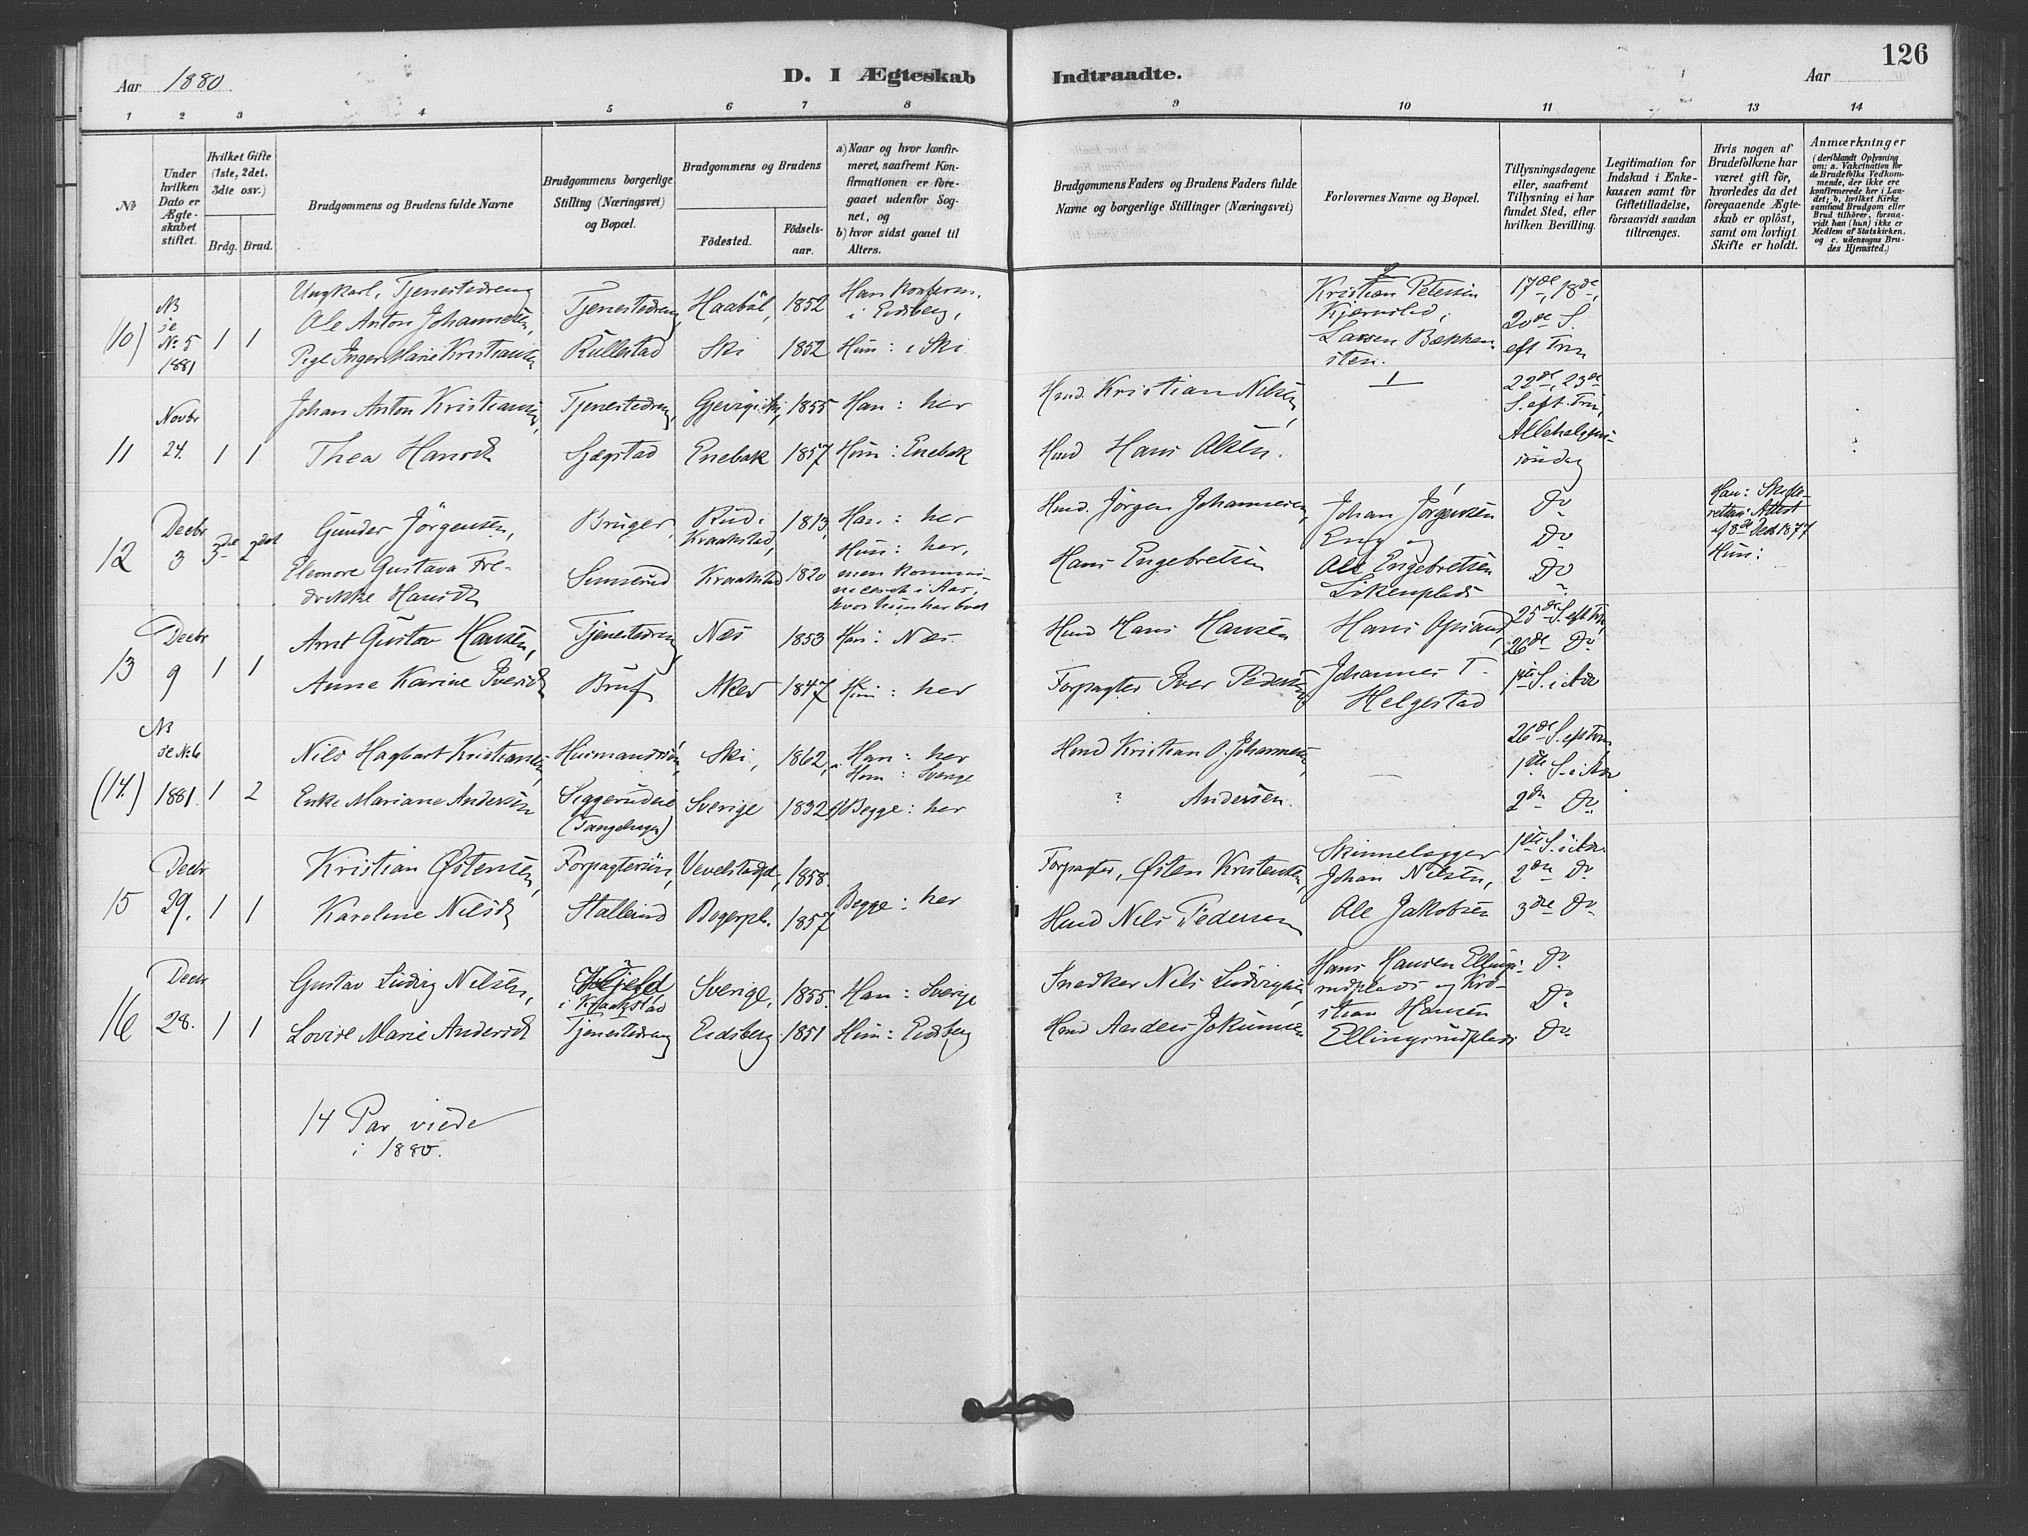 126
Aar 1880.
D. I Ægteskab Indtraadte.
Aar
1 2 3 4 5 6 7 8 9 10 11 13 14
No
Under hvilken Dato er Ægteskabet stiftet.
Hvilket Gifte (1ste, 2det, 3die osv.)
Brdg. Brud.
Brudgommens og Brudens fulde Navne
Brudgommens borgerlige Stilling (Næringsvei) og Bopæl.
Brudgommens og Brudens
Fødested.
Fødselsaar.
a) Naar og hvor konfirmeret, saafremt Konfirmationen er foregaaet udenfor Sognet, og
b) hvor sidst gaaet til Alters.
Brudgommens Faders og Brudens Faders fulde Navne og borgerlige Stillinger (Næringsvei)
Forlovernes Navne og Bopæl.
Tillysningsdagene eller, saafremt Tillysning ei har fundet Sted, efter hvilken Bevilling.
Legitimation for Indskud i Enkekassen samt for Giftetilladelse, forsaavidt saadan tiltrænges.
Hvis nogen af Brudefolkene har været gift før, hvorledes da det foregaaende Ægteskab er opløst, samt om lovligt Skifte er holdt.
Anmærkninger
(deriblandt Oplysning om: a. Vakcination for de Brudefolks Vedkommende, der ikke ere konfirmerede her i Landet; b. hvilket Kirkesamfund Brudgom eller Brud tilhører, forsaavidt han (hun) ikke er Medlem af Statskirken, og c. udensogns Brudes Hjemsted.)
(10) NB se No 5 1881 1 1
Ungkarl, Tjenestedreng
Ole Anton Johannesen,
Pige Inger Marie Kristiansd
Tjenestedreng, Haabøl, 1852 Han konferm. i Eidsberg,
Rullestad Ski 1852 Hun: i Ski
Kristian Petersen
Kjærnstad,
Larsen Bækkensten.
17de, 18de,
20de S.
eft Trin
11 Novbr 24. 1 1
Johan Anton Kristiansen, Tjenestedreng, 1855 Han: her
Thea Hansd Sjægstad Enebak 1857 Hun: Enebak
Hmd. Kristian Nilsen,
Hmd Hans Olsen.
22de, 23de
S. eft. Trin,
Allehelgensöndag
12 Decbr 3 3de 2det
Gunder Jörgensen, Bruger, Rud i Kraakstad, 1813, Han: her
Eleonore Gustava Fredrikke Hansd
Kraakstad 1820 Hun: her,
men kommuniceret i Aas,
hvor hun har boet
Hmd. Jörgen Johannesen,
Hans Engebretsen
Johan Jørgensen
Eng og
Ole Engebretsen
Likenplads
Do
Do
Do
Han: Skifterettens Attest
af 8de Decb 1877
Hun:
13 Decbr 9 1 1
Arnt Gustav Hansen, Tjenestedreng, Næs 1853 Han: Næs
Anne Karine Iversd Aker 1847 Hun: her
Hmd Hans Hansen
Forpagter Iver Pedersen
Johannes T.
Helgestad
25de S. eft Trin,
26de Do
1ste S. i Adv
(14.) NB se No 6 1881. 1 2
Nils Hagbart Kristiansen, Husmandssön, Ski, 1862, Han: her
Hun: Sverige
Enke Mariane Andersen Siggerudeie Sverige 1832 Begge: her
Hmd Kristian O. Johannesen,
? Andersen.
26de S. eft Trin
1ste S. i Adv
2den Do
15 Decbr 29. 1 1
Kristian Østensen, Forpagtersön, 1858.
Karoline Nilsd Stallerud Bogerpl. 1857 Begge: her
Forpagter, Østen Kristensen,
Hmd Nils Pedersen
Skinnelægger
Johan Nilsen,
Ole Jakobsen
1ste S. i Adv.
2den Do
3die Do
16 Decbr 28. 1 1
Gustav Ludvig Nilsen, i Kraakstad Sverige, 1855. Han: Sverige
Lovise Marie Andersd Tjenestedreng Eidsberg 1851 Hun: Eidsberg
Snedker Nils Ludvigsen,
Hmd Anders Jokumsen
Hans Hansen Ellingsrudplads og Kristian Hansen
Ellingsrudplads
Do
Do
Do
14 Par viede
i 1880.